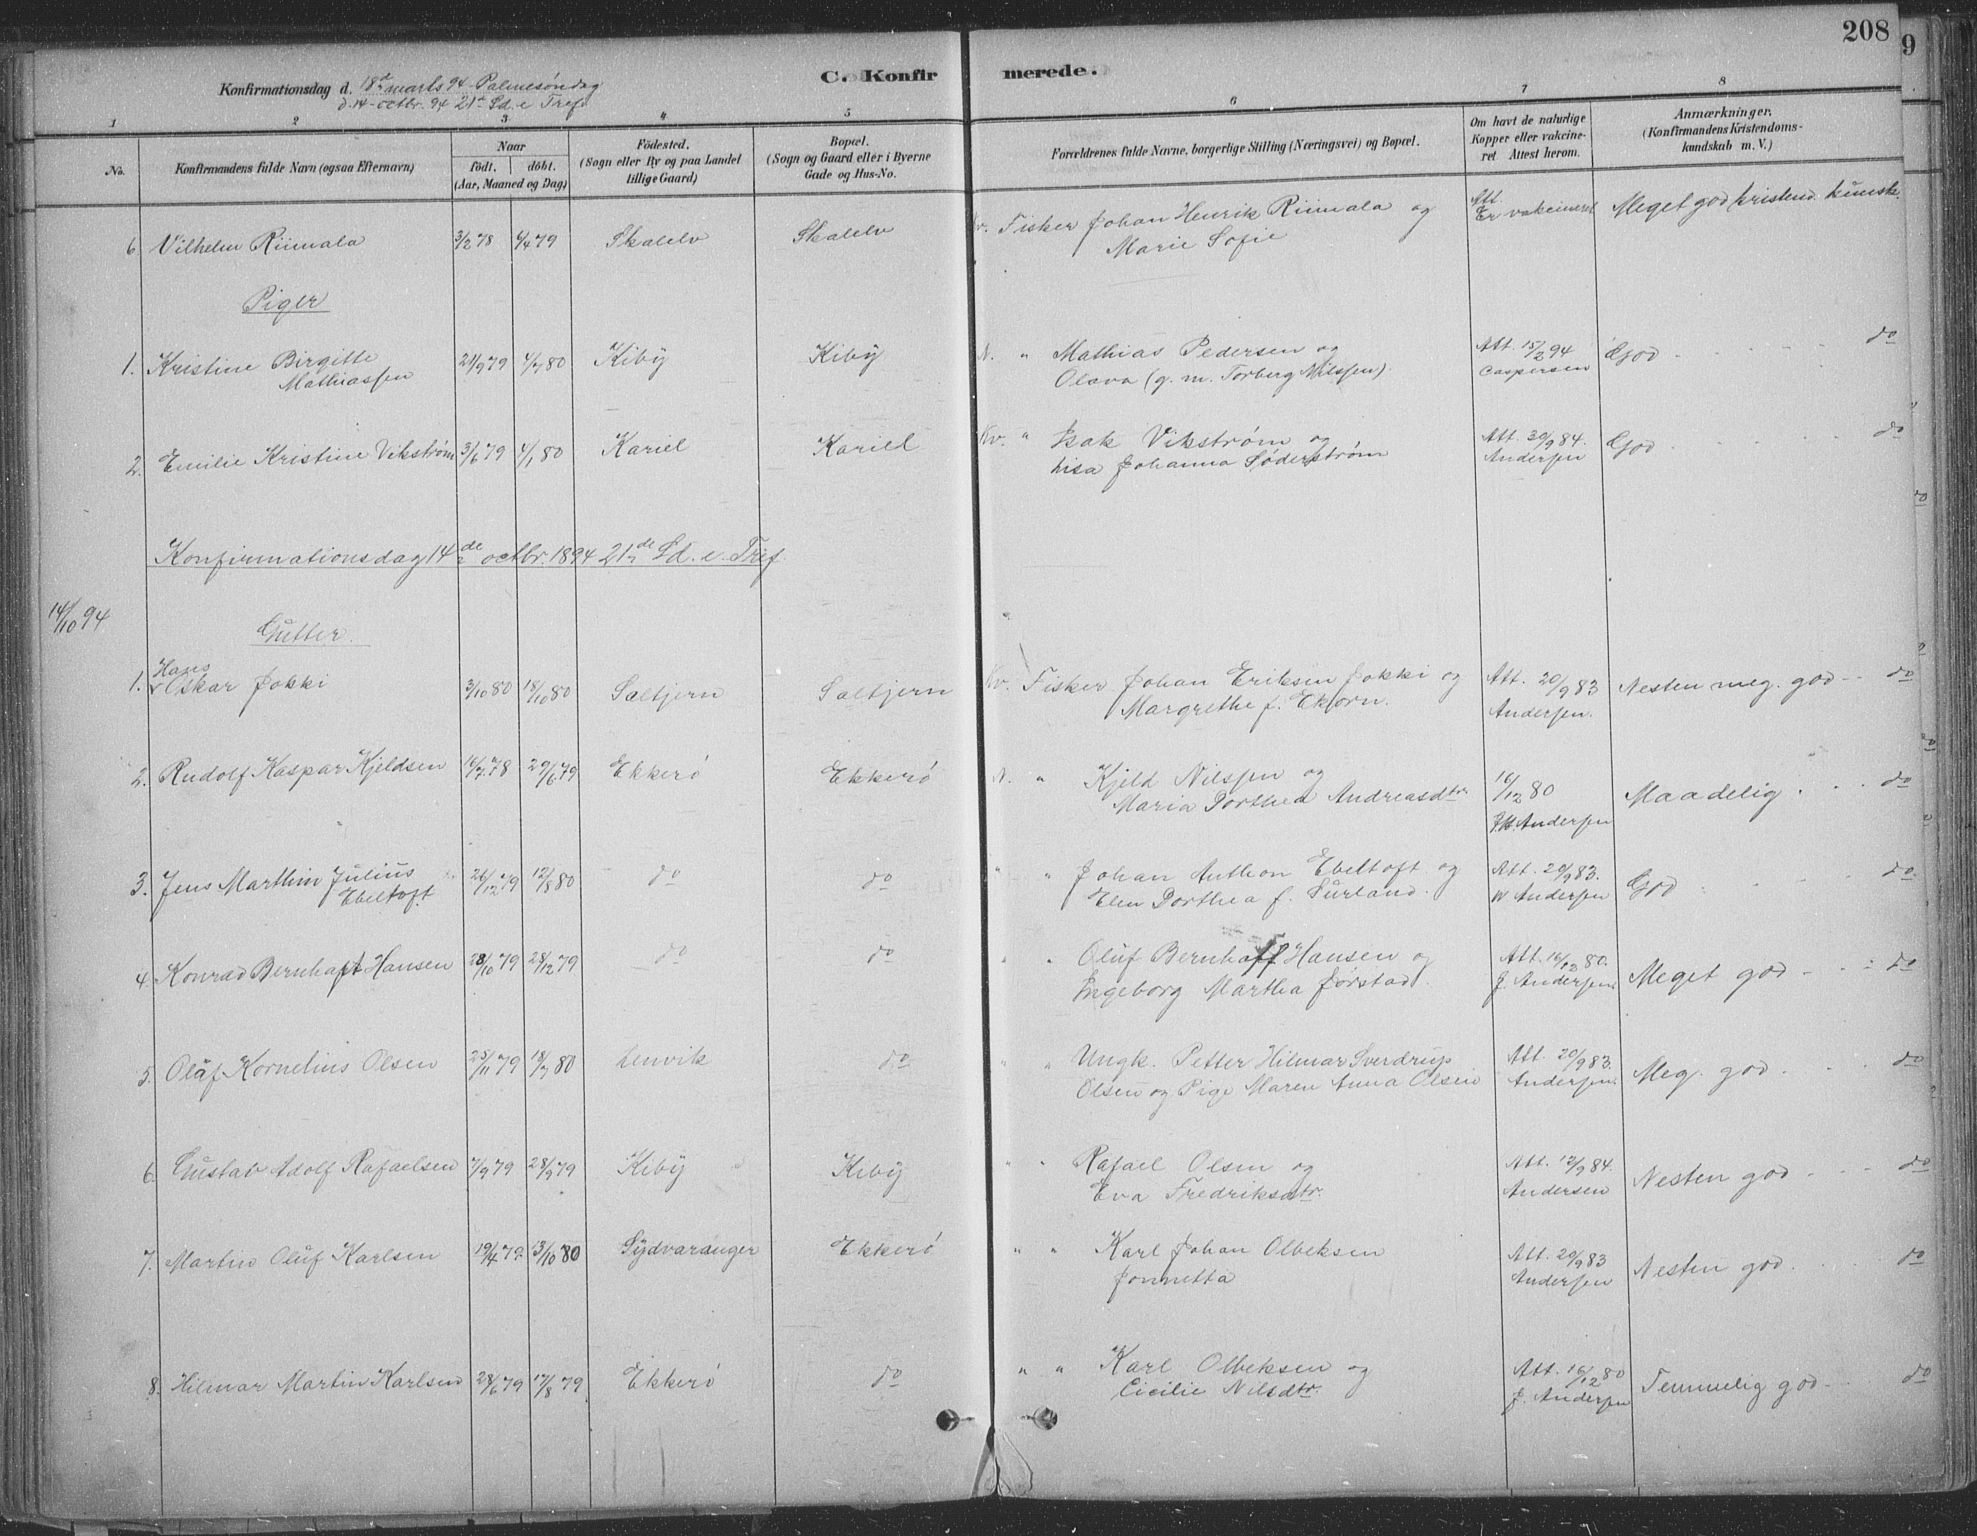 208
9
C. Konfirmerede.
Konfirmationsdag d. 18de marts 94 Palmesøndag
d. 14 octbr. 94 21de Sd. e Tref.
1 2 3 4 5 6 7 8
No.
Konfirmandens fulde Navn (ogsaa Efternavn)
Naar
födt. döbt.
(Aar, Maaned og Dag)
Födested.
(Sogn eller By og paa Landet
tillige Gaard)
Bopæl.
(Sogn og Gaard eller i Byerne
Gade og Hus-No.
Forældrenes fulde Navne, borgerlige Stilling (Næringsvei) og Bopæl.
Om havt de naturlige
Kopper eller vakcine-
ret Attest herom.
Anmærkninger.
(Konfirmandens Kristendoms-
kundskab m. V.)
6. Vilhelm Riimala 3/2 78 6/4 79 Skalelv Skalelv Kv. Fisker Johan Henrik Riimala og
Marie Sofie
Att.
Er vakcineret
Meget god kristend. kunsk.
Piger
1. Kristine Birgitte
Mathiassen
21/9 79 4/7 80 Kiby Kiby N. " Mathias Pedersen og
Olava (g. m. Torberg Nilssen).
Att. 15/2 94
Caspersen
God do
2. Emilie Kristine Vikstrøm 3/6 79 4/1 80 Kariel Kariel Kv. " Isak Vikstrøm og
Lisa Johanna Söderstrøm
Att. 30/9 84.
Andersen
God do
Konfirmationsdag 14de octbr. 1894 21de Sd. e. Tref.
14/10 94
Gutter.
1. Hans
Oskar Jokki
3/10 80 18/10 80 Saltjern Saltjern Kv. Fisker Johan Eriksen Jokki og
Margrethe f. Ekorn.
Att. 20/9 83
Andersen.
Nesten meg. god do
2. Rudolf Kaspar Kjeldsen 16/7 78 29/6 79 Ekkerö Ekkerö N. " Kjeld Nilssen og
Maria Dorthea Andreasdtr
16/12 80
J. Andersen
Maadelig do
3. Jens Marthin Julius
Ebeltoft
26/12 79 12/8 80 do do " " Johan Anthon Ebeltoft og
Elen Dorthea f. Surland.
Att. 20/9 83.
Andersen
God do
4. Konrad Bernhoft Hansen 28/10 79 28/12 79 do do " " Oluf Bernhoff Hansen og
Ingeborg Martha Jørstad.
Att. 16/12 80.
J. Andersen
Meget god do
5. Olaf Kornelius Olsen 25/11 79 18/7 80 Lenvik do " " Ungk. Petter Hilmar Sverdrup
Olsen og Pige Maren Anna Olsen
Att. 20/9 83.
Andersen.
Meg. god do
6. Gustav Adolf Rafaelsen 7/9 79 28/9 79 Kiby Kiby " " Rafael Olsen og
Eva Fredriksdtr.
Att. 12/9 84.
Andersen
Nesten god do
7. Martin Oluf Karlsen 19/4 79 13/10 80 Sydvaranger Ekkerö " " Karl Johan Olbeksen
Jonnetta
Att. 20/9 83
Andersen
Nesten god do
8. Hilmar Martin Karlsen 28/6 79 17/8 79 Ekkerö do " " Karl Olbeksen og
Cicilie Nilsdtr.
Att. 16/12 80
J. Andersen
Temmelig god do